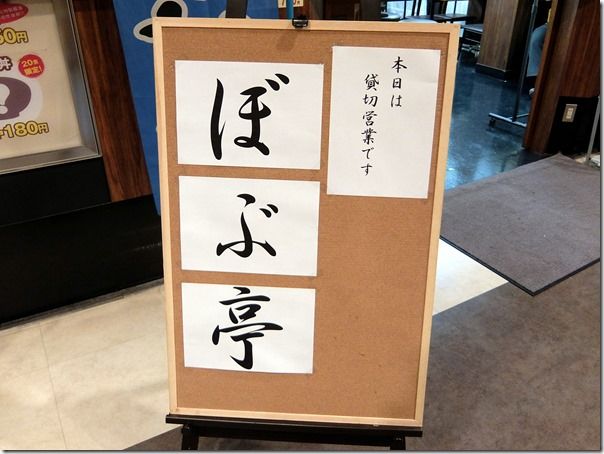 本日は
貸切営業です
ぼ
ぶ
亭
20食
限定!
丼
180円